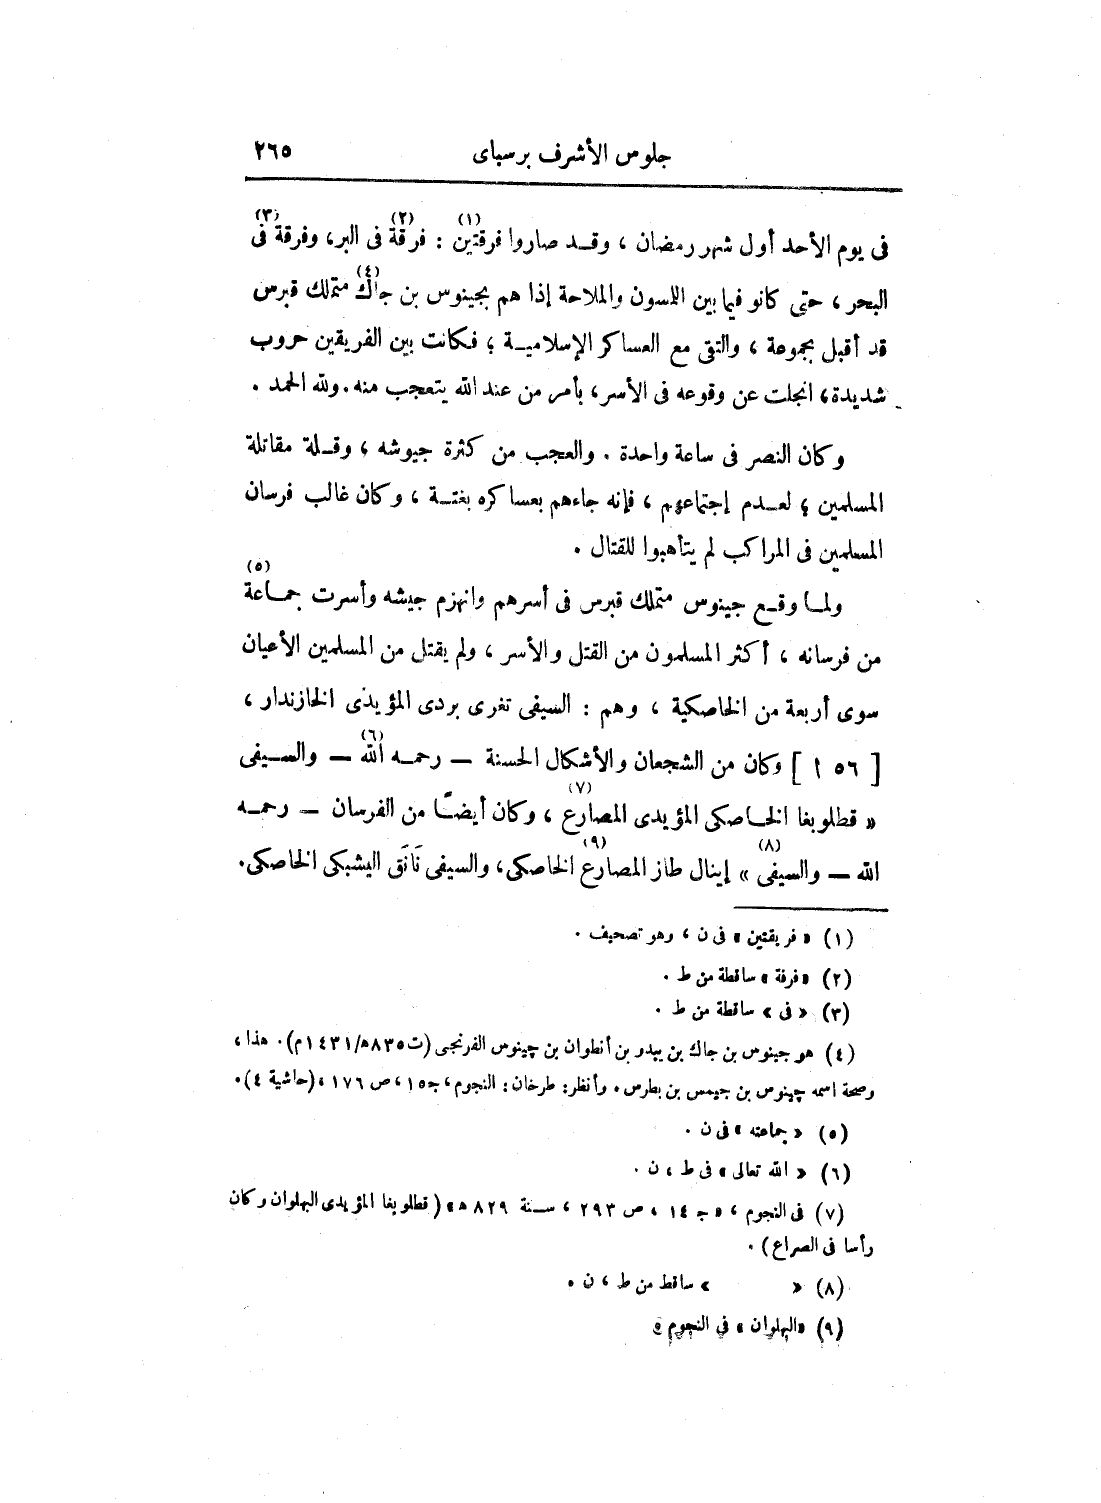 جلوس الأشرف برسباى ٢٦٥
فى يوم الأحد أول شهر رمضان ، وقد صاروا فرقتين (١) : فرقة (٢) فى البر، وفرقة فى (٣)
البحر ، حتى كانو فيما بين اللسون والملاحة إذا هم بجينوس بن جاك (٤) متملك قبرس
قد أقبل بجموعة ، والتقى مع العساكر الإسلامية ؛ فكانت بين الفريقين حروب
شديدة، انجلت عن وقوعه فى الأسر، بأمر من عند الله يتعجب منه. ولله الحمد .
وكان النصر فى ساعة واحدة . والعجب من كثرة جيوشه ، وقلة مقاتلة
المسلمين ؛ لعدم إجتماعهم ، فإنه جاءهم بعساكره بغتة ، وكان غالب فرسان
المسلمين فى المراكب لم يتأهبوا للقتال .
ولما وقع جينوس متملك قبرس فى أسرهم وانهزم جيشه وأسرت جماعة (٥)
من فرسانه ، أكثر المسلمون من القتل والأسر ، ولم يقتل من المسلمين الأعيان
سوى أربعة من الخاصكية ، وهم : السيفى تغرى بردى المؤيدى الخازندار ،
[ ١٥٦ ] وكان من الشجعان والأشكال الحسنة — رحمه الله (٦) — والسيفى
« قطلوبغا الخاصكى المؤيدى المصارع (٧) ، وكان أيضًا من الفرسان — رحمه
الله — والسيفى » (٨) إينال طاز المصارع (٩) الخاصكى، والسيفى نَانَق اليشبكى الخاصكى.
(١) « فريقتين » فى ن ، وهو تصحيف .
(٢) « فرقة » ساقطة من ط .
(٣) « فى » ساقطة من ط .
(٤) هو جينوس بن جاك بن بيدو بن أنطوان بن چينوس الفرنجى (ت٨٣٥ه/١٤٣١م). هذا ،
وصحة اسمه چينوس بن جيمس بن بطرس . وأنظر: طرخان: النجوم، ج١٥، ص ١٧٦ ، (حاشية ٤).
(٥) « جماعته » فى ن .
(٦) « الله تعالى » فى ط ، ن .
(٧) فى النجوم ، « ج ١٤ ، ص ٢٩٣ ، سنة ٨٢٩ ه » ( قطلوبغا المؤيدى البهلوان وكان
رأسا فى الصراع ) .
(٨) « » ساقط من ط ، ن .
(٩) «البهلوان » في النجوم .